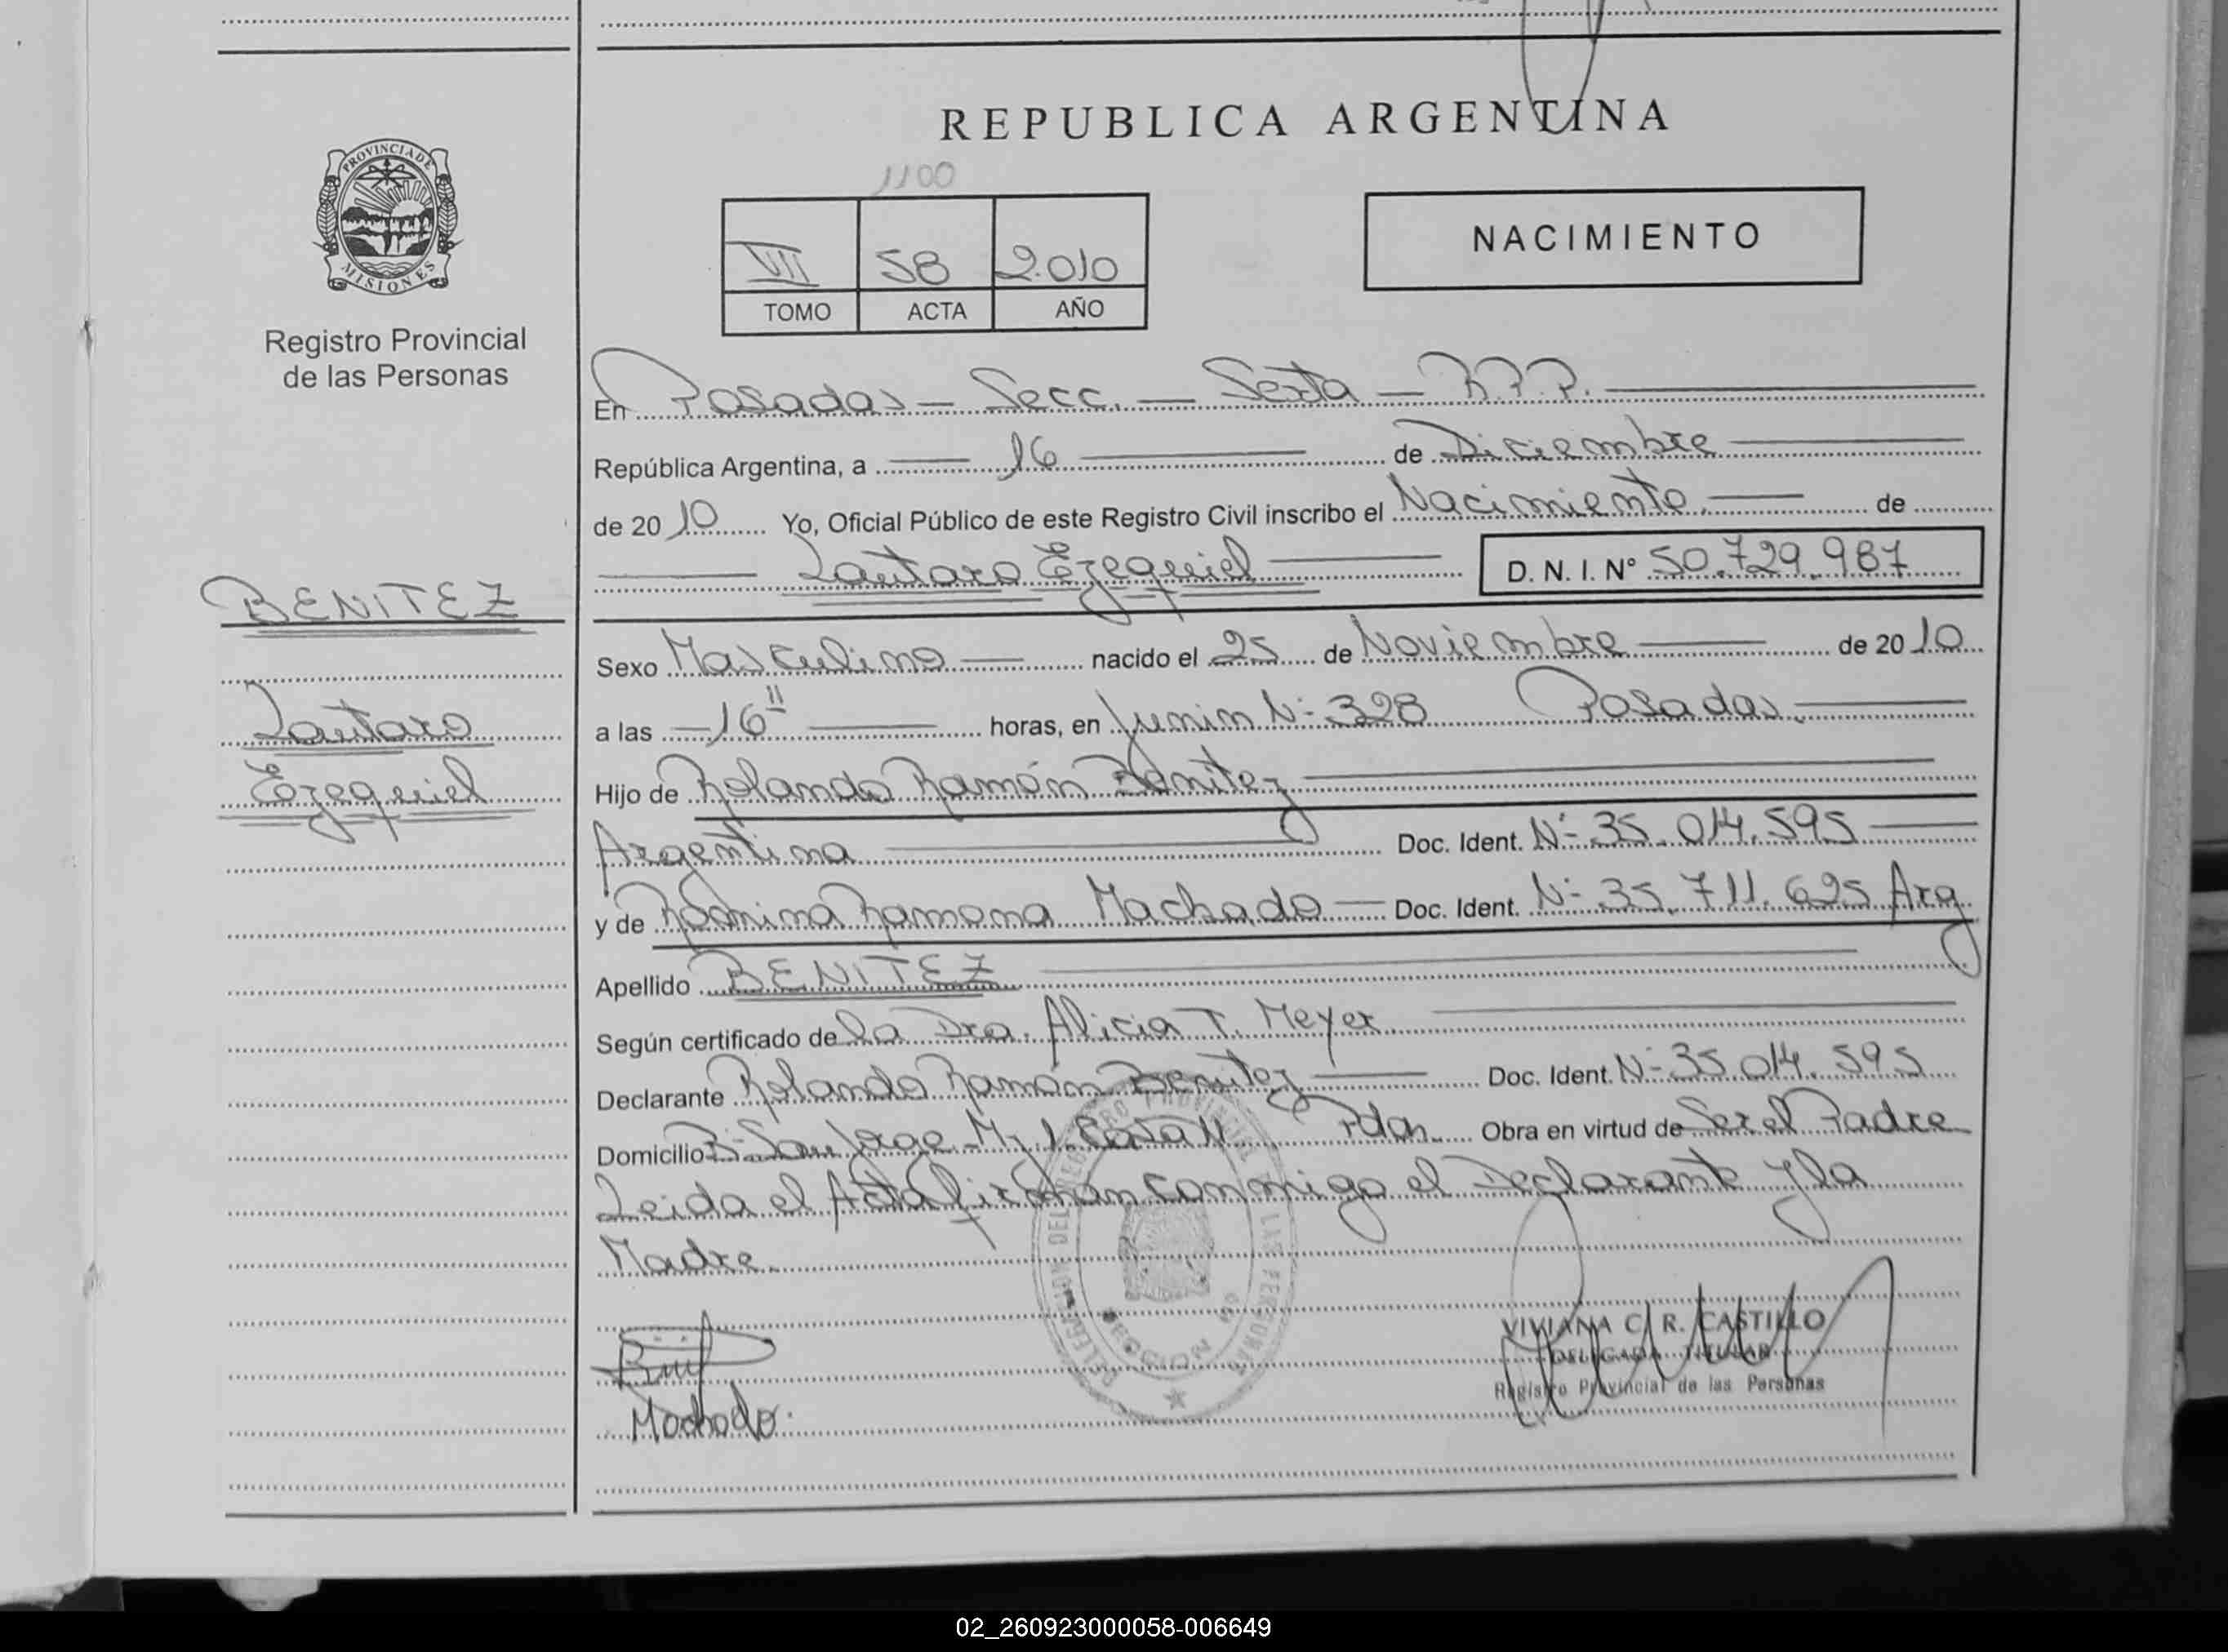 REPUBLICA ARGENTINA
1100
VII 58 2.010
TOMO ACTA AÑO
NACIMIENTO
PROVINCIA DE
MISIONES
Registro Provincial
de las Personas
En Posadas - Secc. - Sexta - R.P.P.
República Argentina, a 16 de Diciembre
de 2010 Yo, Oficial Público de este Registro Civil inscribo el Nacimiento de
Lautaro Ezequiel D. N. I. Nº 50.729.987
BENITEZ
Lautaro
Ezequiel
Sexo Masculino nacido el 25 de Noviembre de 2010
a las 16 horas, en Junin N- 328 Posadas.
Hijo de Rolando Ramón Benitez
Argentina Doc. Ident. N- 35.014.595
y de Romina Ramona Machado Doc. Ident. N- 35.711.625 Arg
Apellido BENITEZ
Según certificado de la Dra. Alicia T. Meyer
Declarante Rolando Ramón Benitez Doc. Ident. N- 35.014.595
Domicilio B- San Jorge M- 1. Casa 11 Pdas. Obra en virtud de Ser el Padre
Leida el Acta firman conmigo el Declarante y la
Madre.
Machado.
VIVIANA C. R. CASTILLO
DELEGADA TITULAR
Registro Provincial de las Personas
02_260923000058-006649